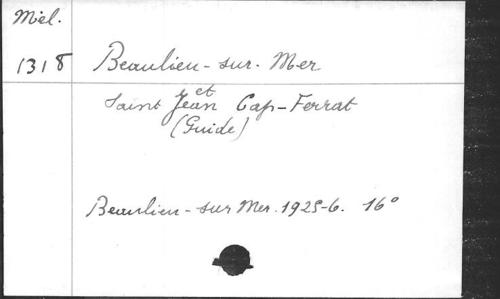 Miel.
1318
Beaulieu-sur-Mer
et
Saint Jean Cap-Ferrat
(Guide)
Beaulieu-sur Mer. 1925-6. 16°